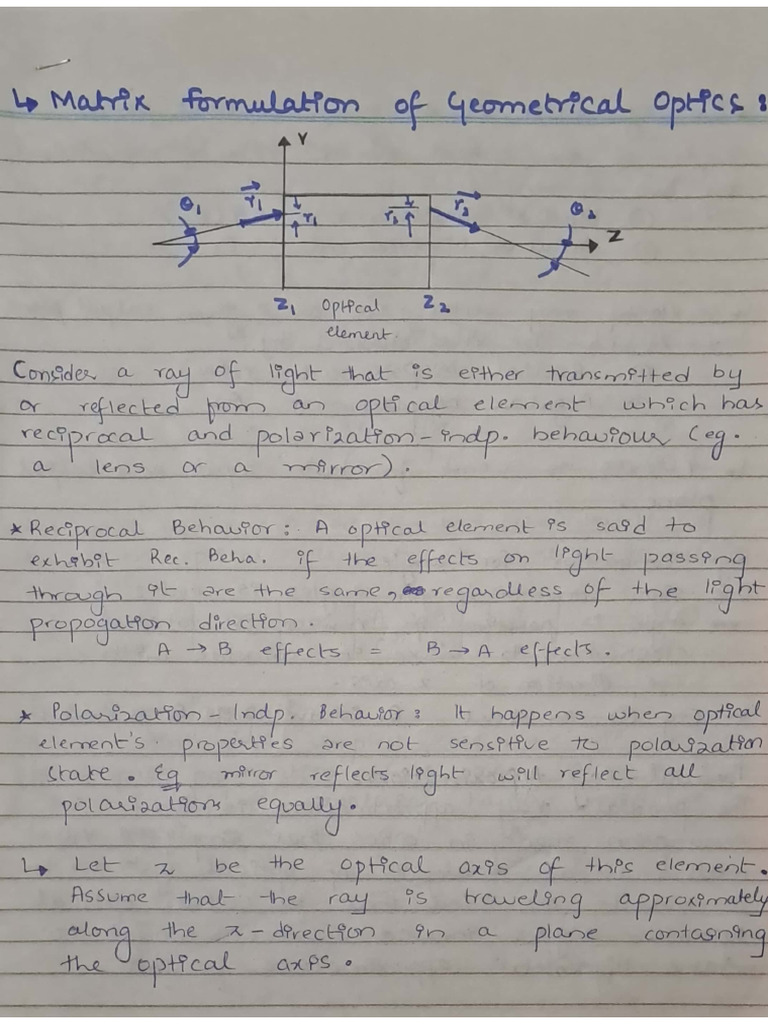 ↳ Matrix formulation of Geometrical Optics :
Y
θ₁ r₁ r₁ r₂ r₂ θ₂ Z
Z₁ Optical Z₂
element.
Consider a ray of light that is either transmitted by
or reflected from an optical element which has
reciprocal and polarization-indp. behaviour (eg.
a lens or a mirror).
* Reciprocal Behavior : A optical element is said to
exhibit Rec. Beha. if the effects on light passing
through it are the same, regardless of the light
propogation direction.
A → B effects = B → A effects.
* Polarization - Indp. Behavior : It happens when optical
element's properties are not sensitive to polarization
state. Eg mirror reflects light will reflect all
polarizations equally.
↳ Let z be the optical axis of this element.
Assume that the ray is traveling approximately
along the z-direction in a plane containing
the optical axis.